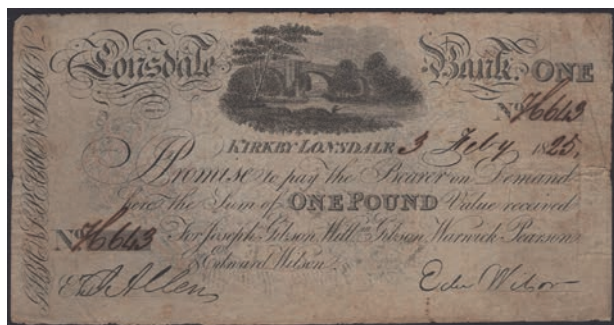 Lonsdale Bank. ONE
No. 
KIRKBY LONSDALE 3 Feby 1825,
I Promise to pay the Bearer on Demand
here the Sum of ONE POUND Value received
No. 
For Joseph Gibson, Willm. Gibson, Warwick Pearson &
Edward Wilson.
Allen
Edw Wilson